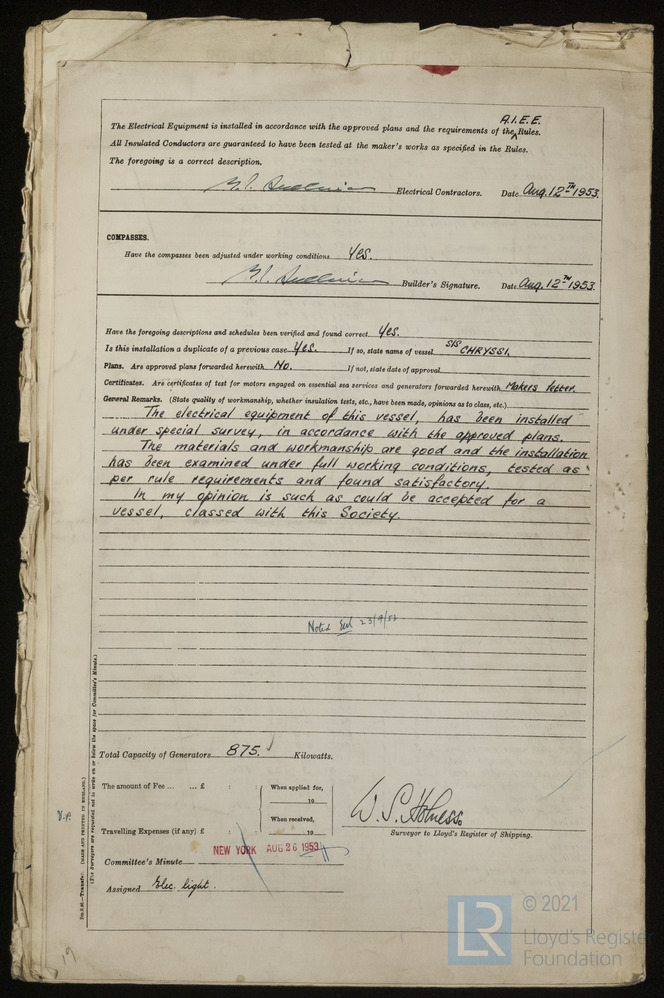 A.I.E.E.
The Electrical Equipment is installed in accordance with the approved plans and the requirements of the Rules.
All Insulated Conductors are guaranteed to have been tested at the maker's works as specified in the Rules.
The foregoing is a correct description.
Electrical Contractors. Date Aug. 12TH 1953.
COMPASSES.
Have the compasses been adjusted under working conditions Yes.
Builder's Signature. Date Aug. 12TH 1953.
Have the foregoing descriptions and schedules been verified and found correct Yes.
Is this installation a duplicate of a previous case Yes. If so, state name of vessel S/S CHRYSSI.
Plans. Are approved plans forwarded herewith No. If not, state date of approval
Certificates. Are certificates of test for motors engaged on essential sea services and generators forwarded herewith Makers letter.
General Remarks. (State quality of workmanship, whether insulation tests, etc., have been made, opinions as to class, etc.)
The electrical equipment of this vessel, has been installed
under special survey, in accordance with the approved plans.
The materials and workmanship are good and the installation
has been examined under full working conditions, tested as
per rule requirements and found satisfactory.
In my opinion is such as could be accepted for a
vessel, classed with this Society.
Noted
Total Capacity of Generators 875. Kilowatts.
The amount of Fee ... ... £ : : When applied for,
19
When received,
Travelling Expenses (if any) £ : : 19
W. S. Holness.
Surveyor to Lloyd's Register of Shipping.
NEW YORK AUG 26 1953
Committee's Minute
Assigned Elec. light.
(MADE AND PRINTED IN ENGLAND.)
(The Surveyors are requested not to write on or below the space for Committee's Minute.)
19
LR
© 2021
Lloyd's Register
Foundation